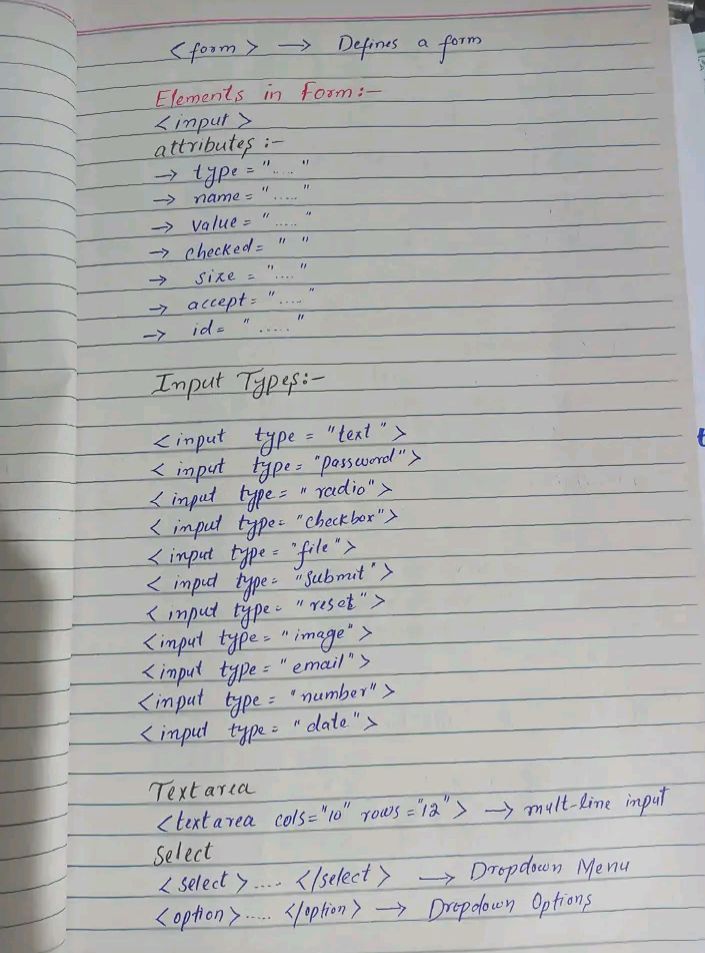 <form> → Defines a form
Elements in Form:-
<input>
attributes :-
→ type = "....."
→ name = "....."
→ value = "....."
→ checked = " "
→ size = "...."
→ accept = "....."
→ id = "....."
Input Types:-
<input type = "text">
<input type = "password">
<input type = "radio">
<input type = "checkbox">
<input type = "file">
<input type = "submit">
<input type = "reset">
<input type = "image">
<input type = "email">
<input type = "number">
<input type = "date">
Textarea
<textarea cols="10" rows="12"> → mult-line input
Select
<select>.... </select> → Dropdown Menu
<option>..... </option> → Dropdown Options